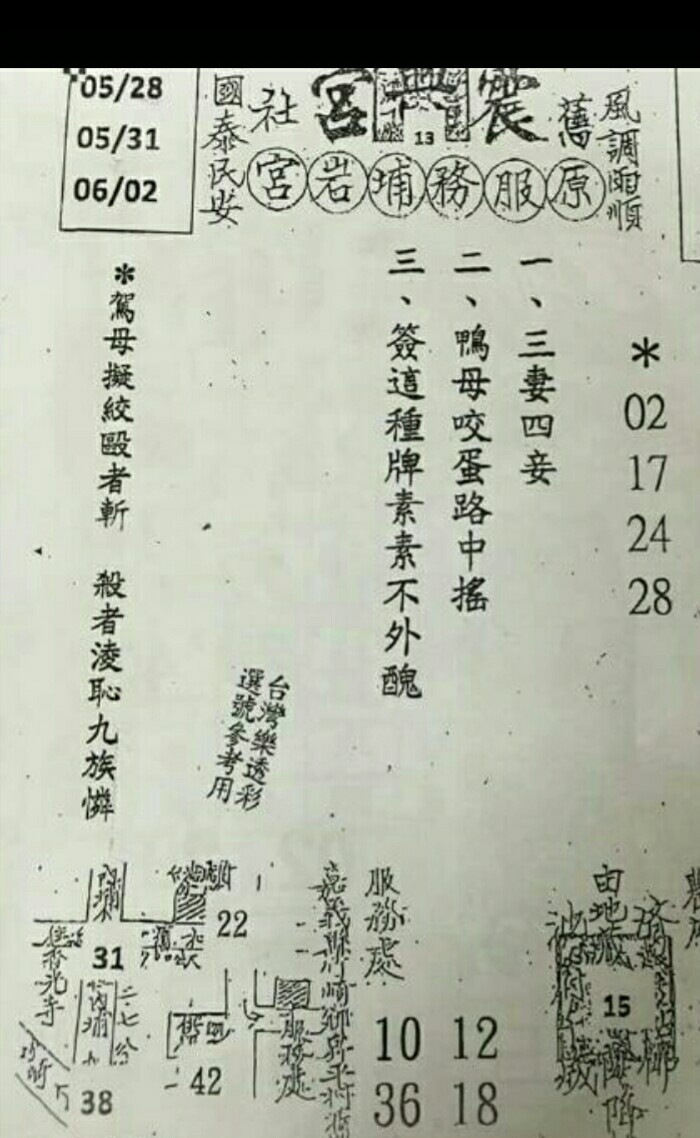 05/28
05/31
06/02
風調雨順
舊
震興宮
13
社
國泰民安
原服務埔岩宮
*
02
17
24
28
一、三妻四妾
二、鴨母咬蛋路中搖
三、簽這種牌素素不外醜
*駕母擬絞毆者斬 殺者淩恥九族憐
台灣樂透彩
選號參考用
服務處
10 12
36 18
15
22
31
內埔
香光寺
服務處
42
38